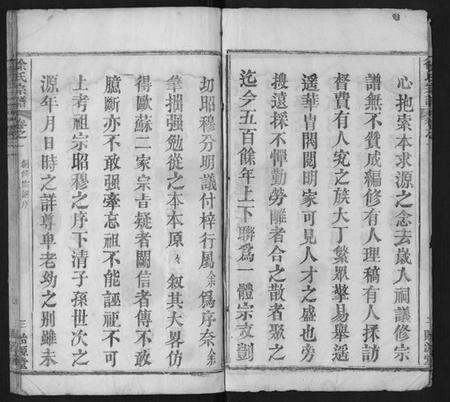 心抱索本求源之念去歲入祠議修宗
譜無不贊成編修有人理稿有人採訪
督費有人兗之族大丁繁眾擎易舉遥
遥華胄閥閱明家可見人才之盛也旁
搜遠採不憚勤勞離者合之散者聚之
迄今五百餘年上下聯為一體宗立劃
切昭穆分明議付梓行屬余為序余
筆摺强勉從之本本原々叙其大畧仿
得歐蘇二家宗吉疑者闕信者傳不敢
臆斷亦不敢强牽忘祖不能誣祖不可
上考祖宗昭穆之序下清子孫世次之
源年月日時之詳尊卑老幼之别雖未
徐氏宗譜
卷之一
三